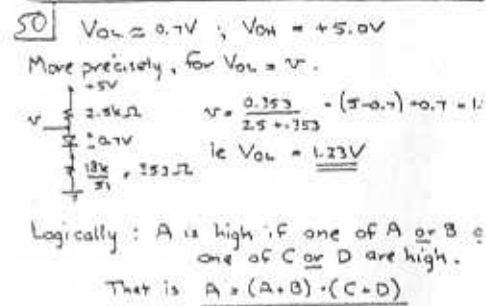 50 VOL ≈ 0.7V ; VOH = +5.0V
More precisely, for VOL = v.
+5V
2.5kΩ
v
v = 0.353 / 2.5 + .353 · (5-0.7) + 0.7 = 1.
0.7V
ie VOL = 1.23V
18k / 51 , 353Ω
Logically : A is high if one of A or B
one of C or D are high.
That is A = (A+B) · (C+D)